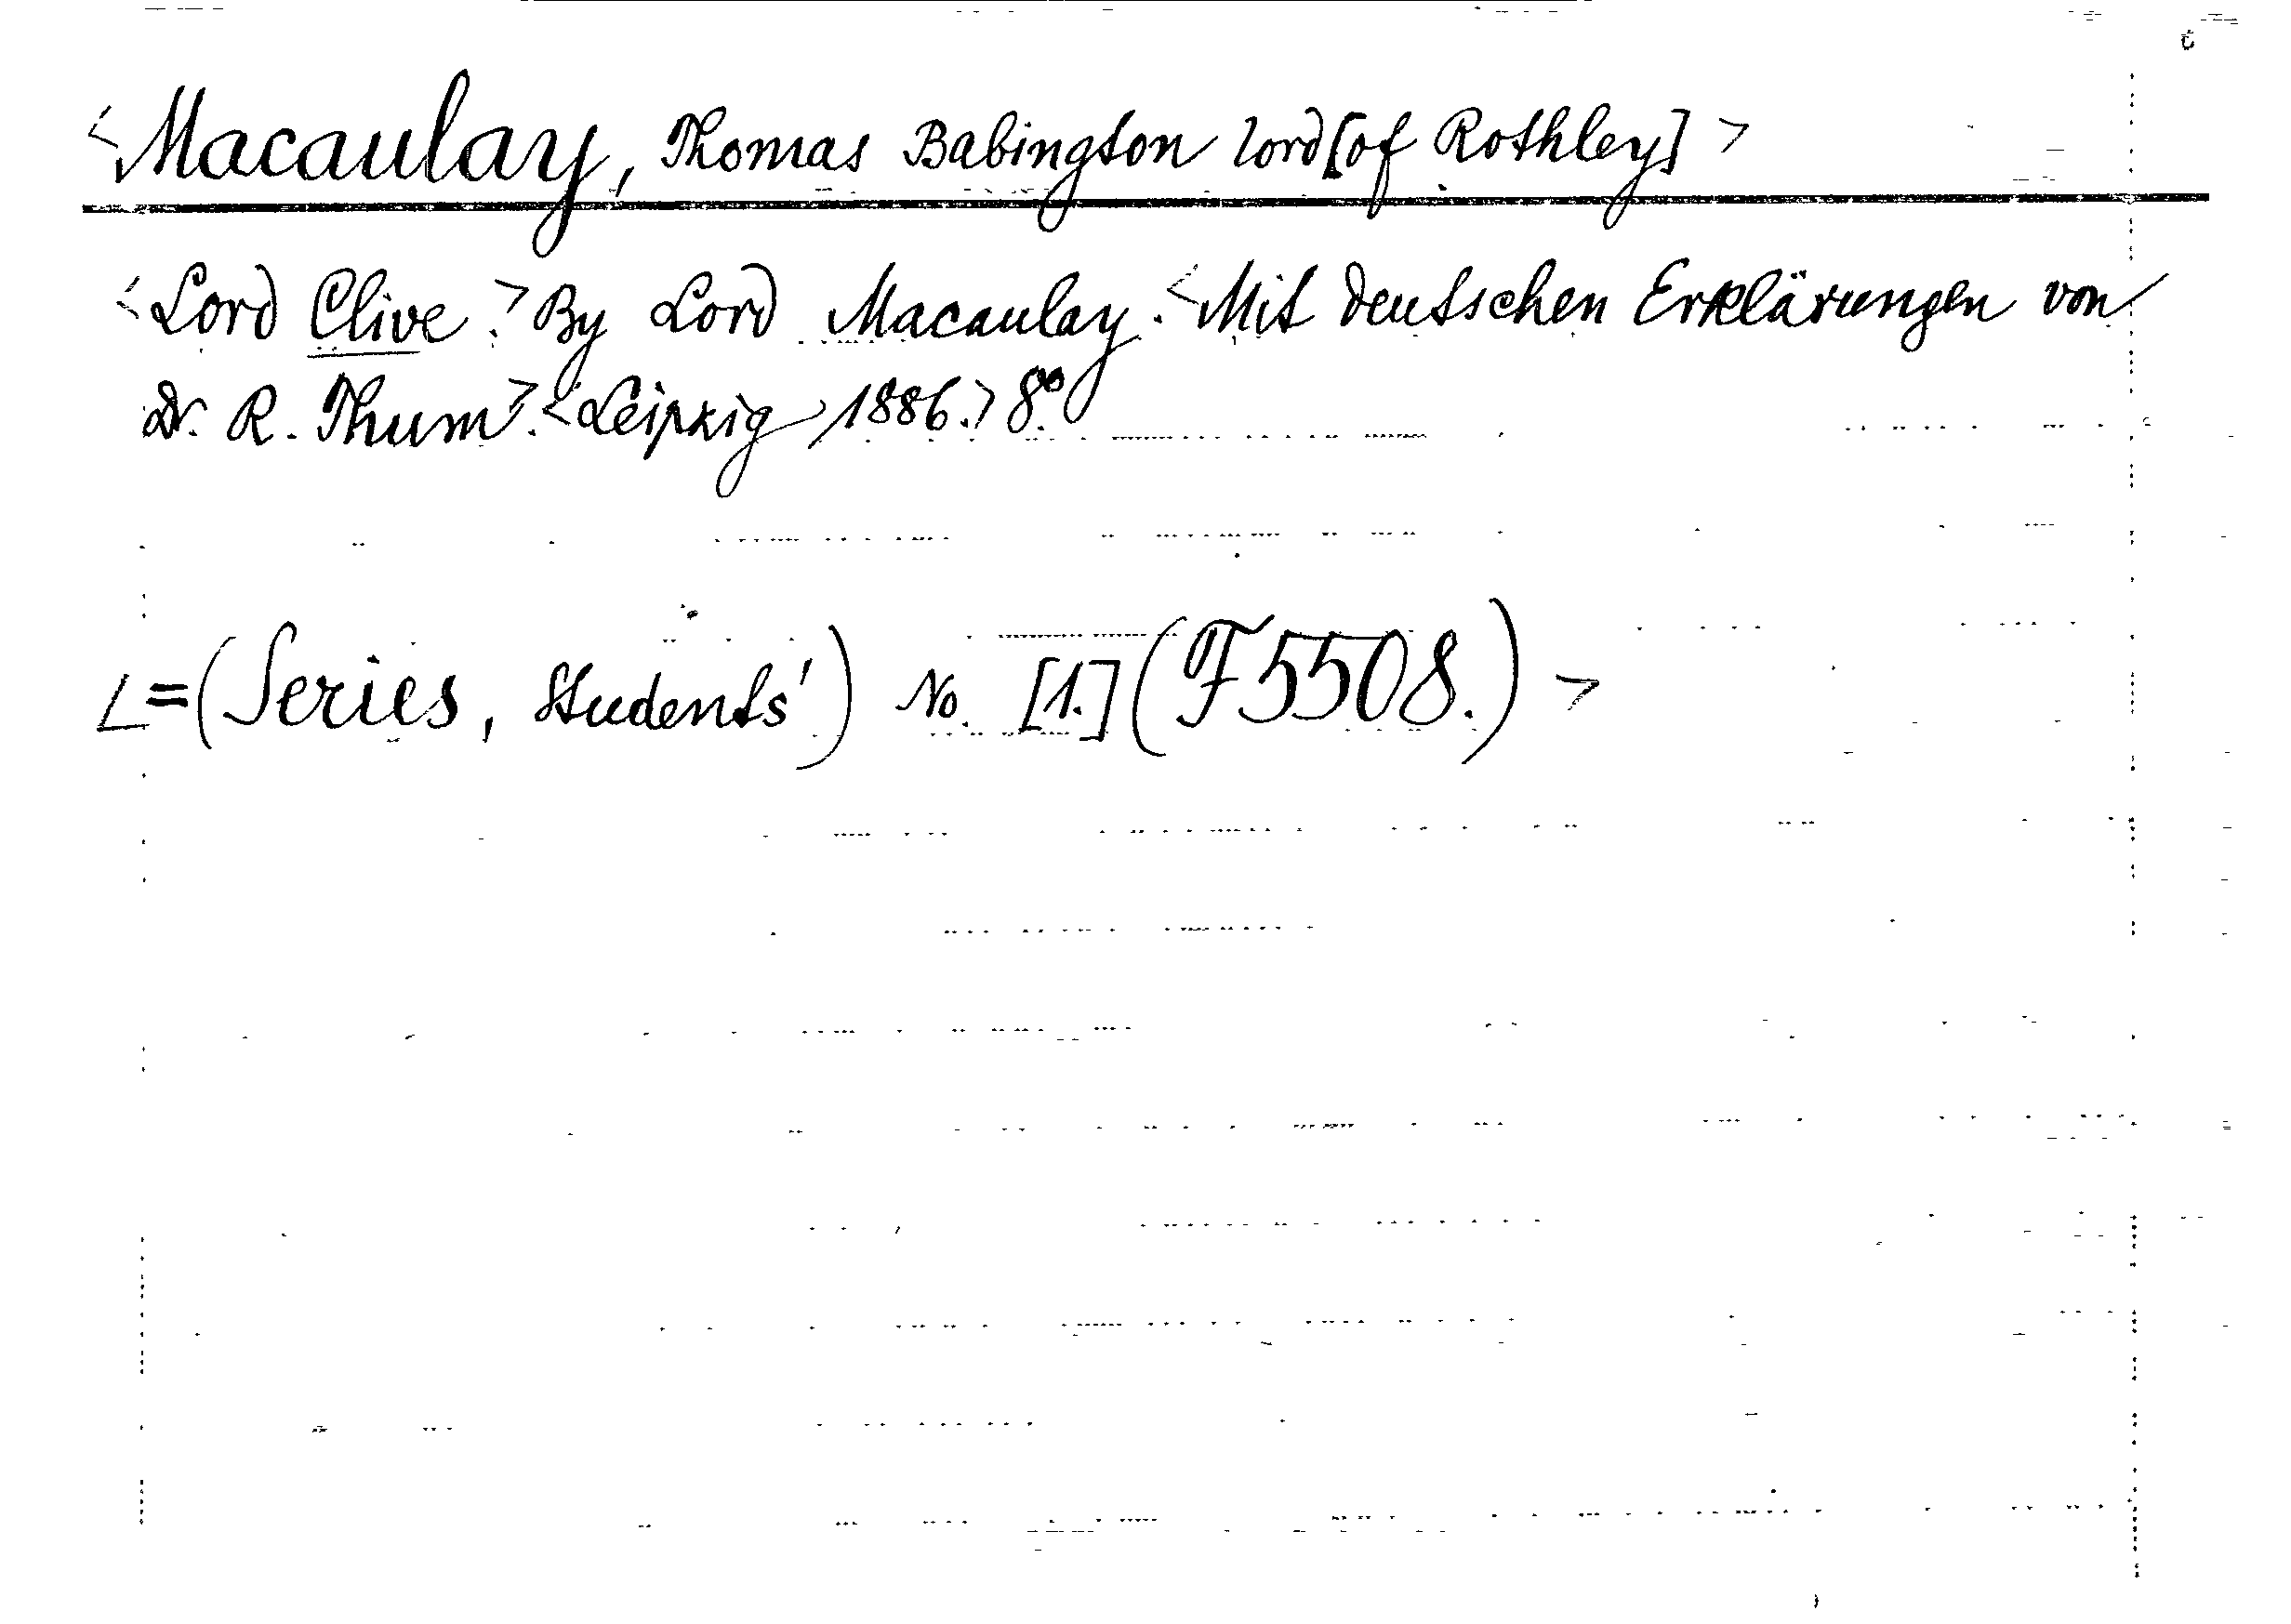 <Macaulay, Thomas Babington Lord [of Rothley]>
<Lord Clive.> By Lord Macaulay. <Mit deutschen Erklärungen von
Dr. R. Thum>. <Leipzig 1886.> 8º.
<=(Series, Students') No. [1.] (F5508.)>